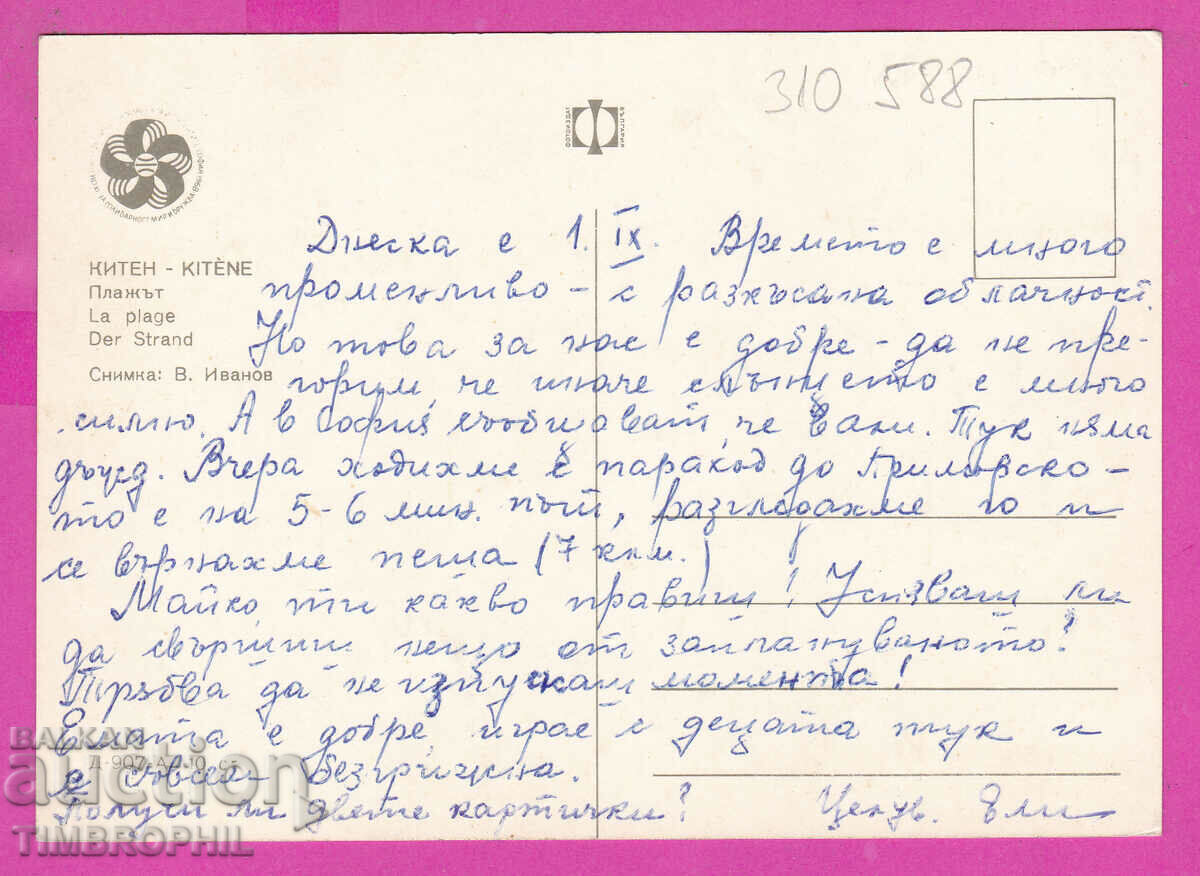 310 588
ФОТОИЗДАТ
БЪЛГАРИЯ
КИТЕН - KITÈNE
Плажът
La plage
Der Strand
Снимка: В. Иванов
Днеска е 1. IX. Времето е много
променливо - с разкъсана облачност.
Но това за нас е добре - да не пре-
горим, че иначе слънцето е много
силно. А в София съобщават, че вали. Тук няма
дъжд. Вчера ходихме с параход до Приморско -
то е на 5-6 мин. път, разгледахме го и
се върнахме пеша (7 км.)
Майко, ти какво правиш! Успяваш ли
да свършиш нещо от заплануваното?
Трябва да не изпускаш момента!
е добре, играе с децата тук и
е съвсем безгрижна.
Получи ли двете картички? Целув. Ели
Д-907-А
БАЛКАН
auction
TIMBROPHIL